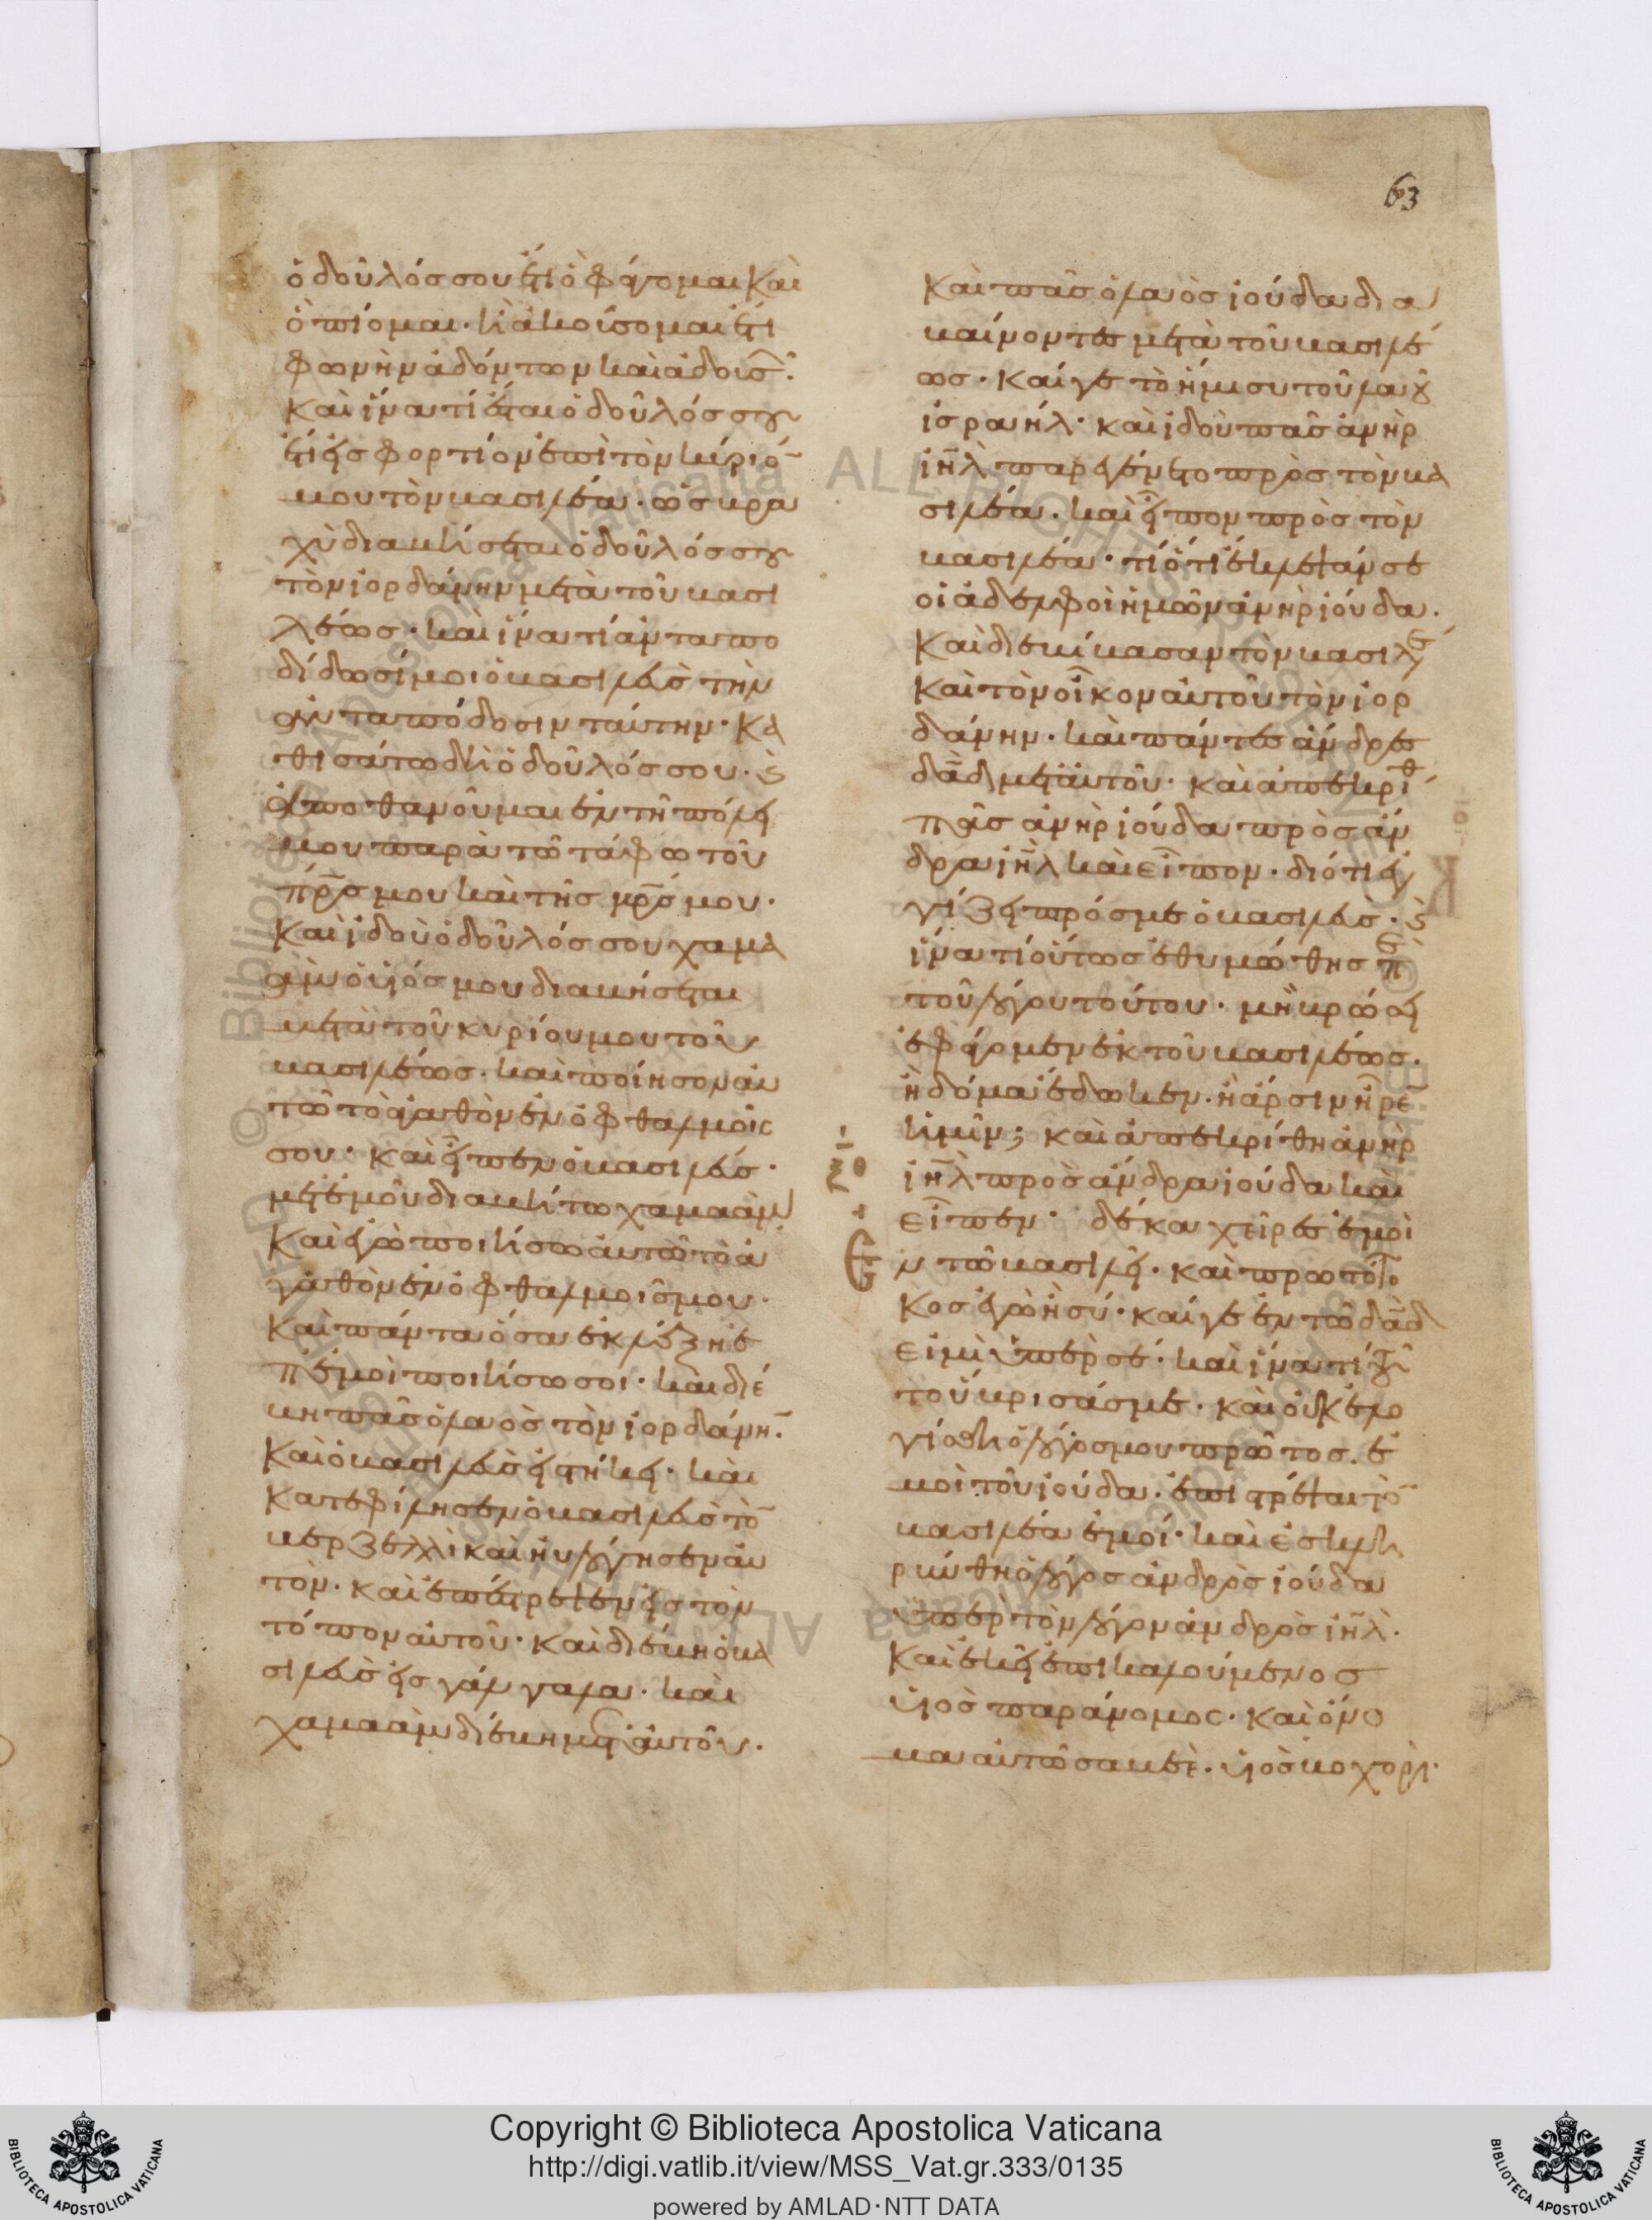 63
ὁ δοῦλόσ σου ἔτι ὃ φάγομαι καὶ
ὃ πίομαι· ἢ ἀκούσομαι ἔτι
φωνὴν ἀδόντων καὶ ἀδουσῶ̅·
καὶ ἵνα τί ἔσται ὁ δοῦλόσ σου
ἔτι εἰσ φορτίον ἐπὶ τὸν κύριό̅
μου τὸν βασιλέα· ὡσ βρα
χὺ διαβήσεται ὁ δοῦλόσ σου
τὸν ἰορδάνην μετὰ τοῦ βασι
λέωσ· καὶ ἵνα τί ἀνταπο
δίδωσί μοι ὁ βασιλεὺσ τὴν
ἀνταπόδοσιν ταύτην· κα
θισάτω δὴ ὁ δοῦλόσ σου· ϗ
ἀποθανοῦμαι ἐν τῆ πόλει
μου παρὰ τῶ τάφω τοῦ
π̅ρ̅σ μου καὶ τῆσ μ̅ρ̅σ μου·
καὶ ἰδοὺ ὁ δοῦλόσ σου χαμα
ὰμ ὁ υἱόσ μου διαβήσεται
μετὰ τοῦ κυρίου μου τοῦ
βασιλέωσ· καὶ ποίησον αὐ
τῶ τὸ ἀγαθὸν ἐν ὀφθαλμοῖσ
σου· καὶ εἶπεν ὁ βασιλεύσ·
μετ' ἐμοῦ διαβήτω χαμαάμ
καὶ ἐγὼ ποιήσω αὐτῶ τὸ ἀ
γαθὸν ἐν ὀφθαλμοῖσ μου·
καὶ πάντα ὅσα ἐκλέξη ἐ
π' ἐμοὶ ποιήσω σοι· καὶ διέ
βη πᾶσ ὁ λαὸσ τὸν ἰορδάνη̅·
καὶ ὁ βασιλεὺσ εἱστήκει· καὶ
κατεφίλησεν ὁ βασιλεὺσ τὸ̅
βερζελλὶ καὶ ηὐλόγησεν αὐ
τόν· καὶ ἐπέστρεψεν εἰσ τὸν
τόπον αὐτοῦ· καὶ διέβη ὁ βα
σιλεὺσ εἰσ γάλγαλα· καὶ
χαμαὰμ διέβη μετ' αὐτοῦ·
καὶ πᾶσ ὁ λαὸσ ἰούδα δια
βαίνοντεσ μετὰ τοῦ βασιλέ
ωσ· καί γε τὸ ἥμισυ τοῦ λαοῦ
ἰσραήλ· καὶ ἰδοὺ πᾶσ ἀνὴρ
ι̅η̅λ παρεγένετο πρὸσ τὸν βα
σιλέα· καὶ εἶπον πρὸσ τὸν
βασιλέα· τί ὅτι ἔκλεψάν σε
οἱ ἀδελφοὶ ἡμῶν ἀνὴρ ἰούδα·
καὶ διεβίβασαν τὸν βασιλέα
καὶ τὸν οἶκον αὐτοῦ τὸν ἰορ
δάνην· καὶ πάντεσ ἄνδρεσ
δ̅α̅δ μετ' αὐτοῦ· καὶ ἀπεκρίθ
πᾶσ ἀνὴρ ἰούδα πρὸσ ἄν
δρα ι̅η̅λ καὶ εἶπον· διότι ἐγ
γίζει πρόσ με ὁ βασιλεύσ· ϗ
ἵνα τί οὕτωσ ἐθυμώθησ πε
τοῦ λόγου τούτου· μὴ βρώσει
ἐφάγομεν ἐκ τοῦ βασιλέωσ·
ἢ δόμα ἔδωκεν· ἢ ἄρσιν ἦρε̅
ἡμῖν; καὶ ἀπεκρίθη ἀνὴρ
ι̅η̅λ πρὸσ ἄνδρα ἰούδα καὶ
εἶπεν· δέκα χεῖρεσ ἐμοὶ
ἐν τῶ βασιλεῖ· καὶ πρωτότο
κοσ ἐγὼ ἢ σύ· καί γε ἐν τῶ δ̅α̅δ
εἰμὶ ὑπὲρ σέ· καὶ ἵνα τί τοῦ
το ὕβρισάσ με· καὶ οὐκ ἐλο
γίσθη ὁ λόγοσ μου πρῶτοσ· ἐ
μοὶ τοῦ ἰούδα· ἐπιστρέψαι τὸ̅
βασιλέα ἐμοί· καὶ ἐσκλη
ρύνθη ὁ λόγοσ ἀνδρὸσ ἰούδα
ὑπὲρ τὸν λόγον ἀνδρὸσ ι̅η̅λ·
καὶ ἐκεῖ ἐπικαλούμενοσ
υἱὸσ παράνομοσ· καὶ ὄνο
μα αὐτῶ σαβεέ· υἱὸσ βοχορί·
Copyright © Biblioteca Apostolica Vaticana
http://digi.vatlib.it/view/MSS_Vat.gr.333/0135
powered by AMLAD·NTT DATA